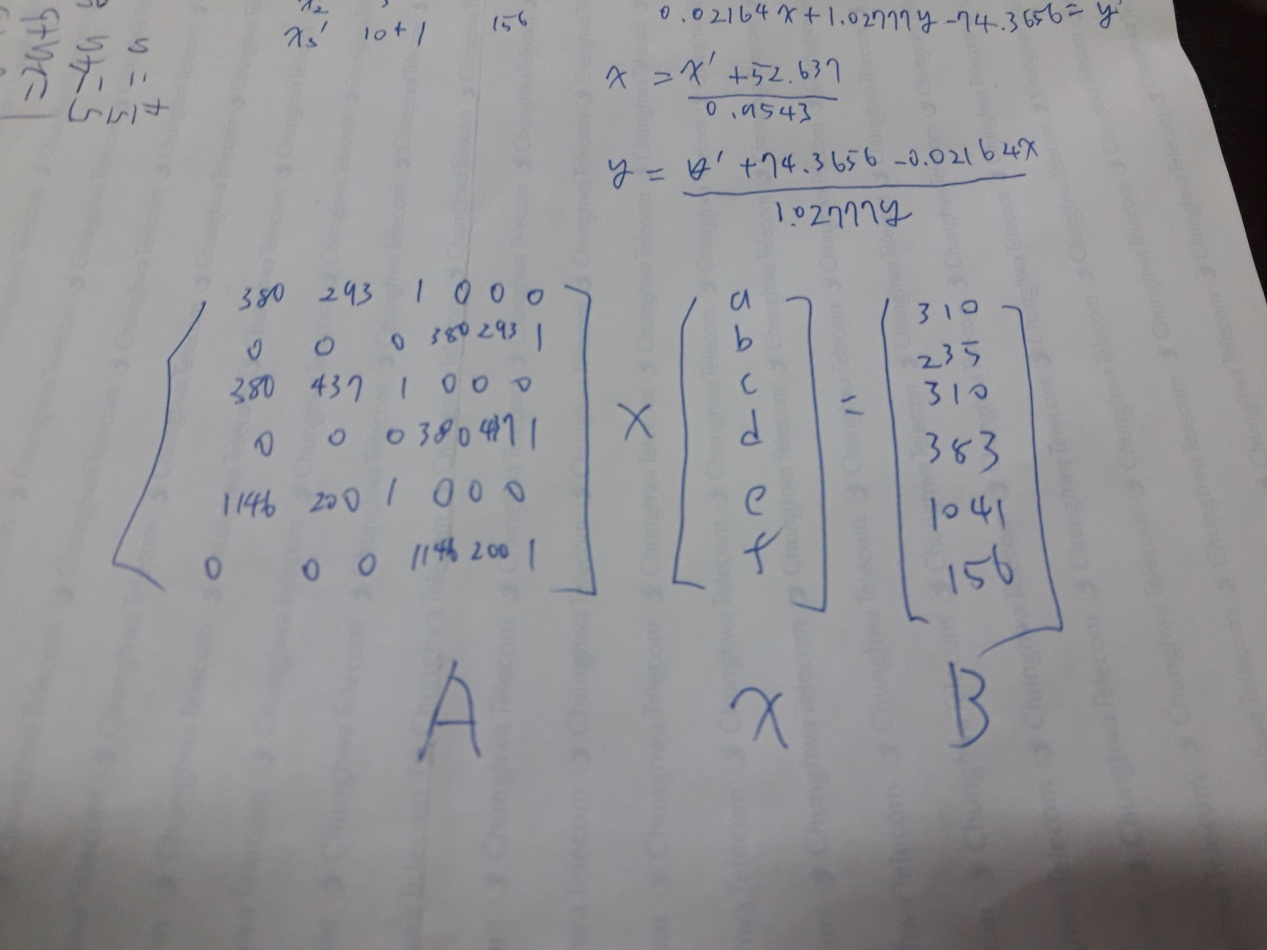 x₂
x₃' 10+1 156
0.02164x+1.02777y-74.3656=y'
x = x' +52.637
0.9543
y = y' +74.3656 -0.02164x
1.02777y
380 293 1 0 0 0
0 0 0 380 293 1
380 437 1 0 0 0
0 0 0 380 437 1
1146 200 1 0 0 0
0 0 0 1146 200 1
×
a
b
c
d
e
f
=
310
235
310
383
1041
156
A
x
B
Chunghwa Telecom